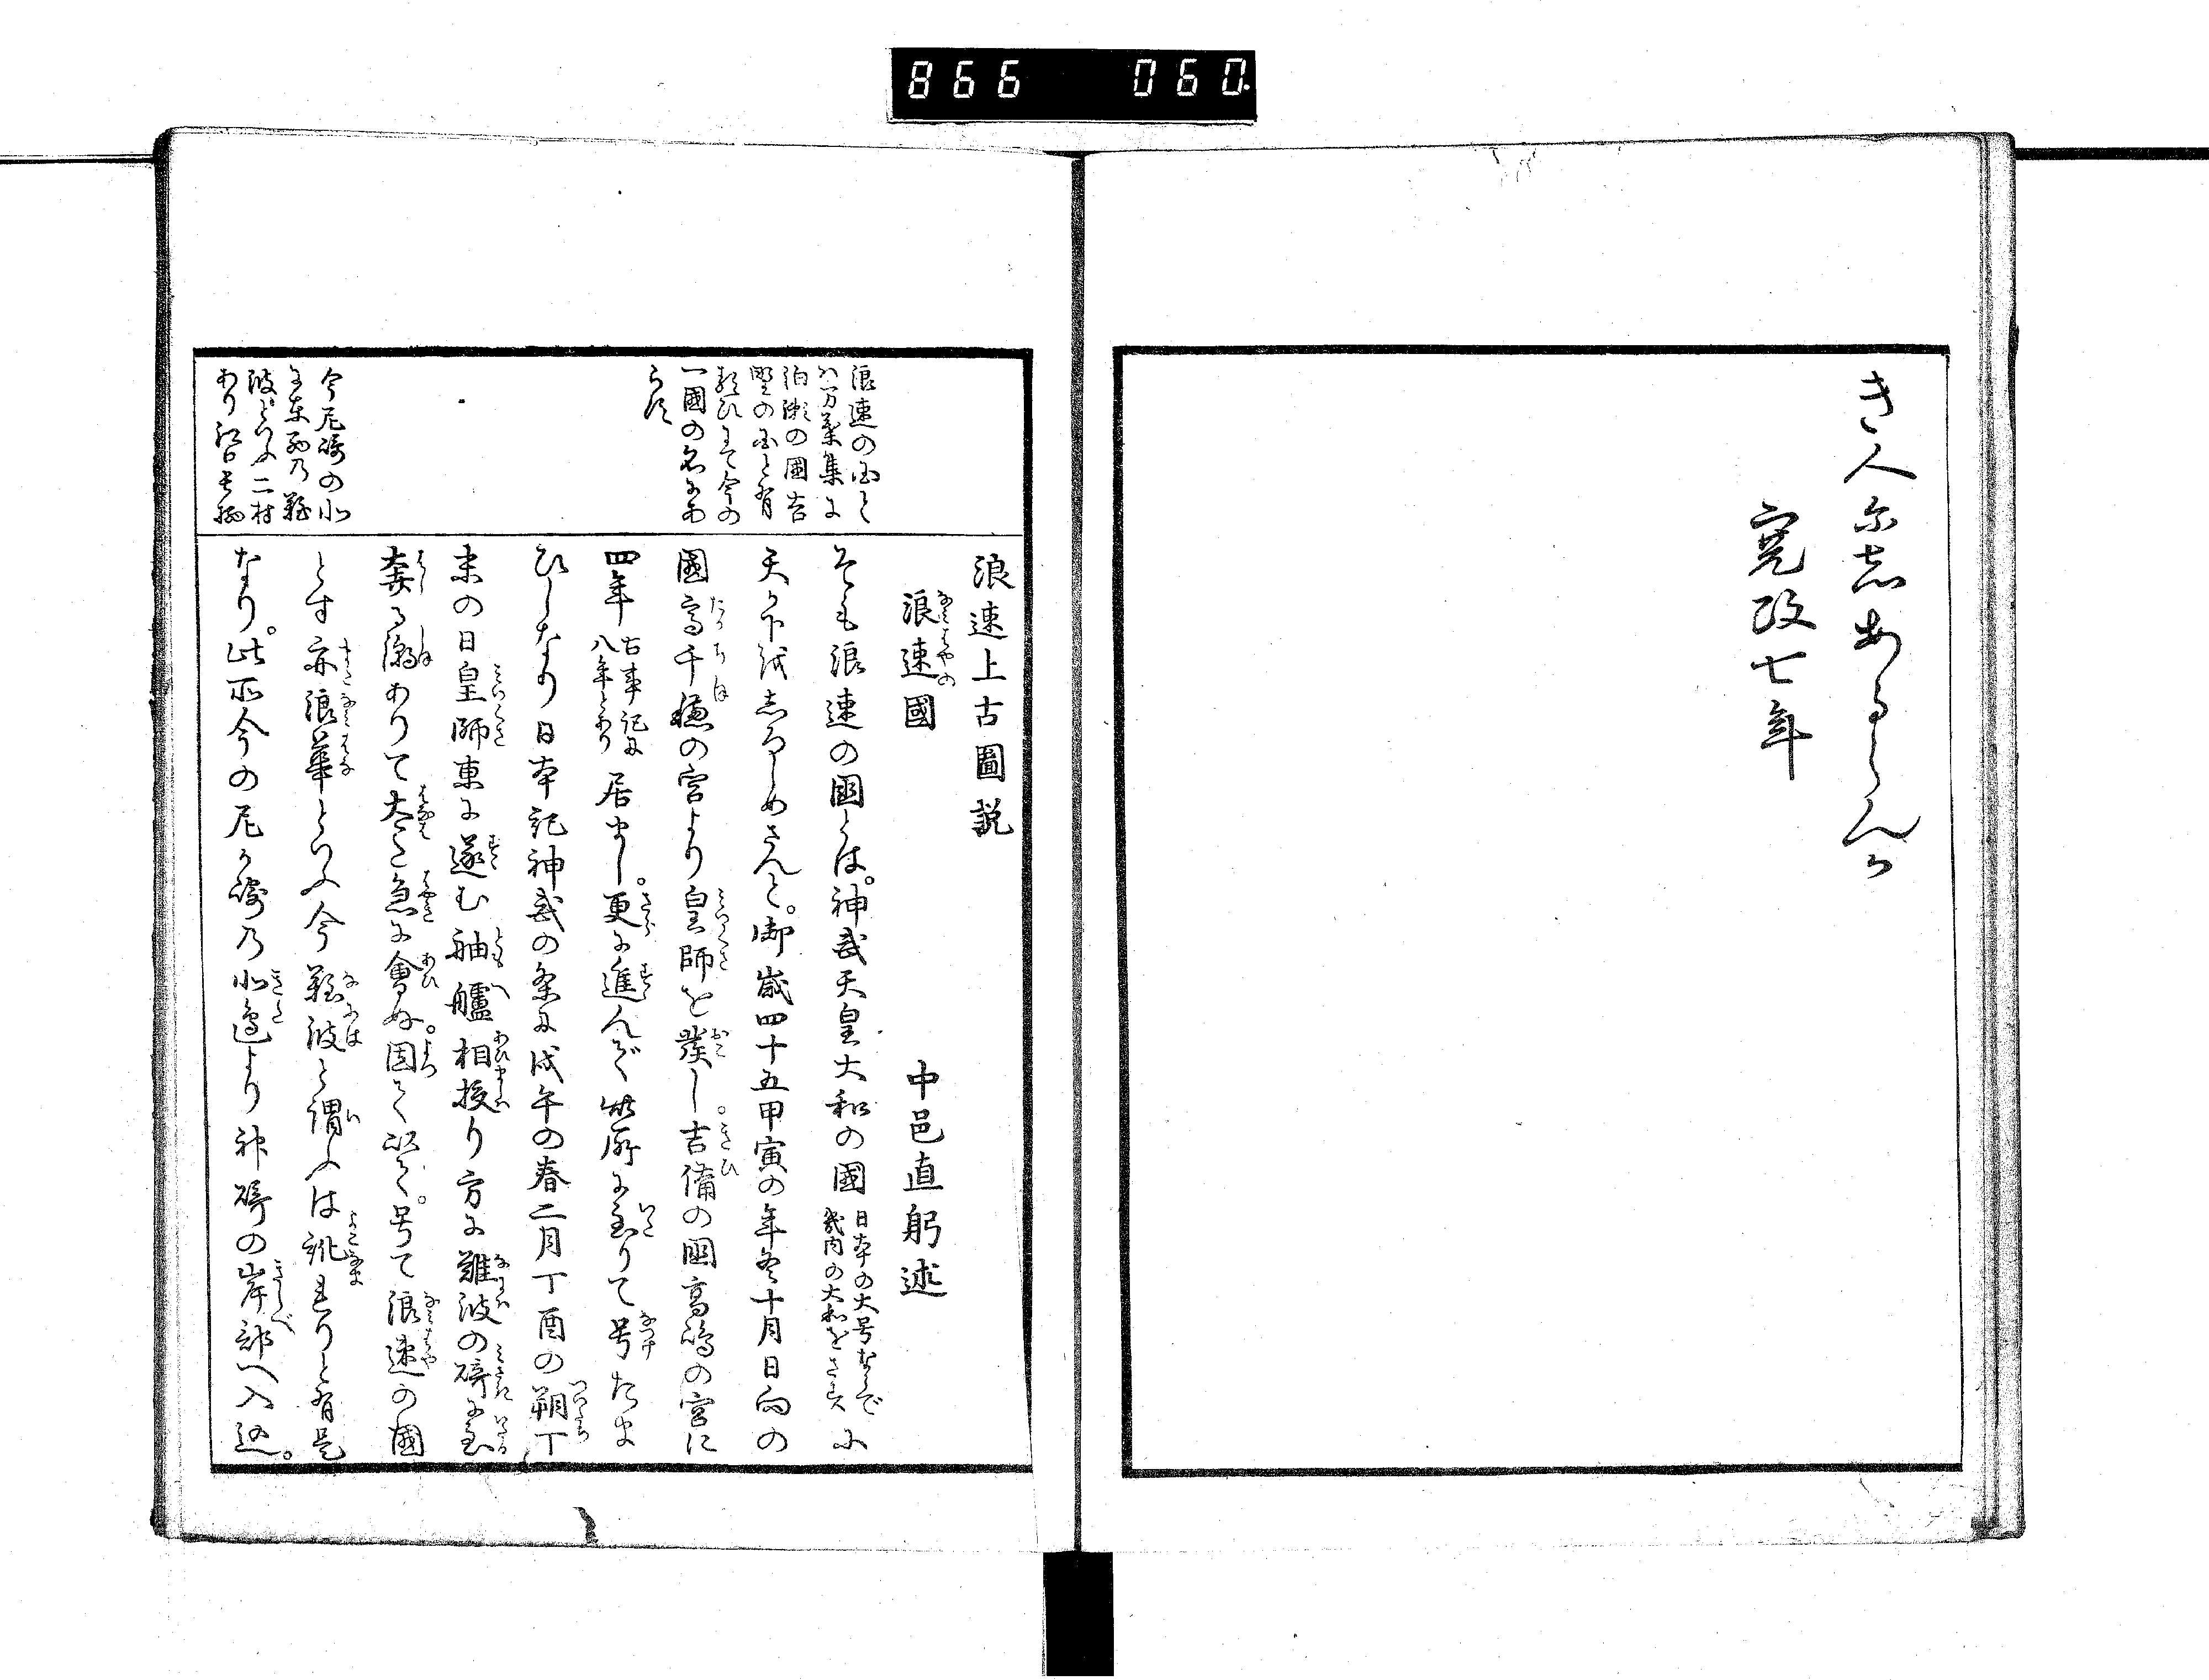 866 060
き人に志あるらんか
寛政七年
浪速上古圖説
浪速國 中邑直躬述
そも〳〵浪速の國とは。神武天皇大和の國 日本の大号ならで 幾内の大和をさす に
天か下をしろしめさんと。御歳四十五甲寅の年冬十月日向の
國高千穂の宮より皇師を發し。吉備の國高嶋の宮に
四年 古事記に 八年とあり 居まし。更に進んで此所に至りて号たま
ひしなり日本記神武の条に戊午の春二月丁酉の朔丁
未の日皇師東に遂む舳艫相接り方に難波の碕に至
奔る潮ありて太た急に會ぬ。因て以て。号て浪速の國
とす亦浪華といふ今難波と謂ふは訛れりと有是
なり。此所今の尼か崎乃北邉より神崎の岸部へ入込。
浪速の国と
ハ万葉集に
泊瀬の國吉
野の国と有
類ひにて今の
一國の名にあ
らす
今尼崎の北
に東西乃難
波といふ二村
あり